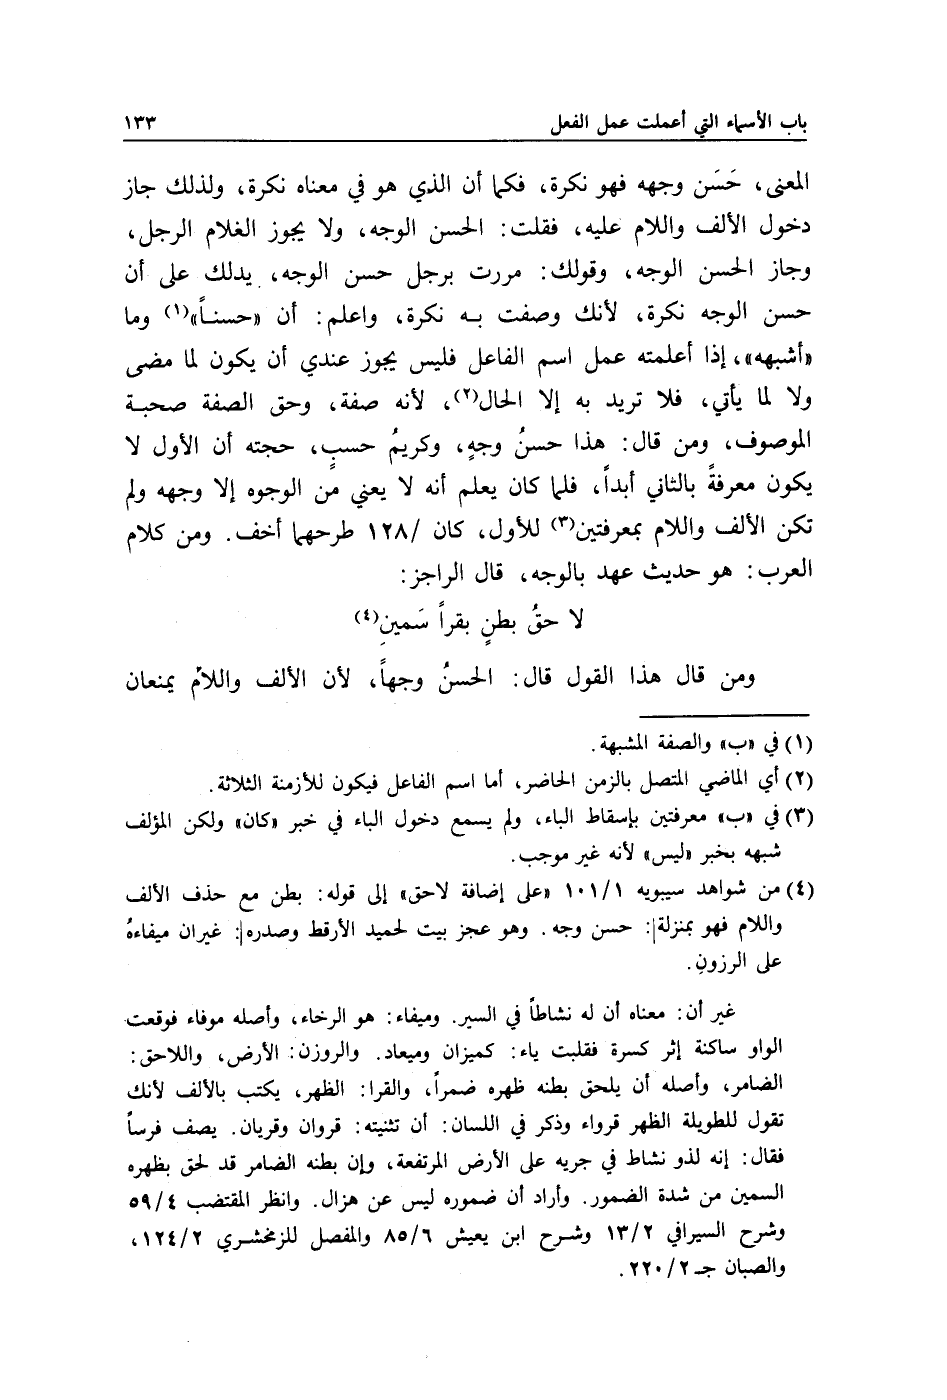 باب الأسماء التي أعملت عمل الفعل ١٣٣
المعنى، حَسَن وجهه فهو نكرة، فكما أن الذي هو في معناه نكرة، ولذلك جاز
دخول الألف واللام عليه، فقلت: الحسن الوجه، ولا يجوز الغلام الرجل،
وجاز الحسن الوجه، وقولك: مررت برجل حسن الوجه، يدلك على أن
حسن الوجه نكرة، لأنك وصفت به نكرة، واعلم: أن «حسناً»(١) وما
«أشبهه»، إذا أعلمته عمل اسم الفاعل فليس يجوز عندي أن يكون لما مضى
ولا لما يأتي، فلا تريد به إلا الحال(٢)، لأنه صفة، وحق الصفة صحبة
الموصوف، ومن قال: هذا حسنُ وجهٍ، وكريمُ حسبٍ، حجته أن الأول لا
يكون معرفةً بالثاني أبداً، فلما كان يعلم أنه لا يعني من الوجوه إلا وجهه ولم
تكن الألف واللام بمعرفتين(٣) للأول، كان /١٢٨ طرحهما أخف. ومن كلام
العرب: هو حديث عهد بالوجه، قال الراجز:
لا حقُ بطنٍ بقراً سَمينِ(٤)
ومن قال هذا القول قال: الحسنُ وجهاً، لأن الألف واللامّ يمنعان
(١) في «ب» والصفة المشبهة.
(٢) أي الماضي المتصل بالزمن الحاضر، أما اسم الفاعل فيكون للأزمنة الثلاثة.
(٣) في «ب» معرفتين بإسقاط الباء، ولم يسمع دخول الباء في خبر «كان» ولكن المؤلف
شبهه بخبر «ليس» لأنه غير موجب.
(٤) من شواهد سيبويه ١٠١/١ «على إضافة لاحق» إلى قوله: بطن مع حذف الألف
واللام فهو بمنزلة: حسن وجه. وهو عجز بيت لحميد الأرقط وصدره: غيران ميفاءهُ
على الرزونِ.
غير أن: معناه أن له نشاطاً في السير. وميفاء: هو الرخاء، وأصله موفاء فوقعت
الواو ساكنة إثر كسرة فقلبت ياء: كميزان وميعاد. والروزن: الأرض، واللاحق:
الضامر، وأصله أن يلحق بطنه ظهره ضمراً، والقرا: الظهر، يكتب بالألف لأنك
تقول للطويلة الظهر قرواء وذكر في اللسان: أن تثنيته: قروان وقريان. يصف فرساً
فقال: إنه لذو نشاط في جريه على الأرض المرتفعة، وإن بطنه الضامر قد لحق بظهره
السمين من شدة الضمور. وأراد أن ضموره ليس عن هزال. وانظر المقتضب ٥٩/٤
وشرح السيرافي ١٣/٢ وشرح ابن يعيش ٨٥/٦ والمفصل للزمخشري ١٢٤/٢،
والصبان جـ ٢٢٠/٢.